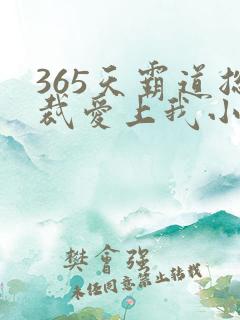 365天霸道总
裁爱上我小
樊會强
未任同意禁止转载